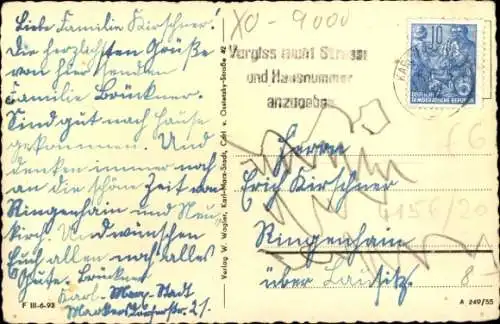 Liebe Familie Kirschner!
Die herzlichsten Grüße
von hier senden
Familie Brückner.
Sind gut nach hause
gekommen. Und
denken immer noch
an die schöne Zeit von
Ringenhain und Neu-
kirch. Und wünschen
Euch allen noch alles
Gute. Brückner
Karl-Marx-Stadt
21.
F III-6-93
Verlag W. Wagler, Karl-Marx-Stadt, Carl v. Ossietzky-Straße 42
IXO-9000
Vergiss nicht Strasse
und Hausnummer
anzugeben
10
DEUTSCHE
DEMOKRATISCHE REPUBLIK
Herrn
Erich Kirschner
4156/20
Ringenhain
über Lausitz.
8-
A 249/55